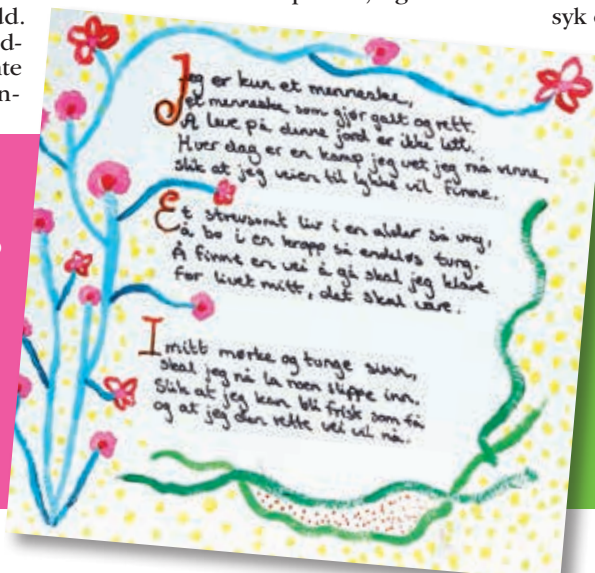 ld.
d-
nte
n-
syk
Jeg er kun et menneske,
et menneske som gjør galt og rett.
Å leve på denne jord er ikke lett.
Hver dag er en kamp jeg vet jeg må vinne,
slik at jeg veien til lykke vil finne.
Et strevsomt liv i en alder så ung,
å bo i en kropp så endeløs tung.
Å finne en vei å gå skal jeg klare
for livet mitt, det skal vare.
I mitt mørke og tunge sinn,
skal jeg nå la noen slippe inn.
Slik at jeg kan bli frisk som få
og at jeg den rette vei vil nå.